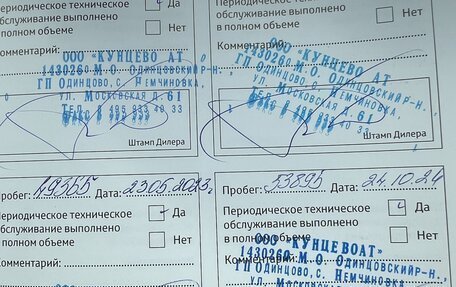 Периодическое техническое
обслуживание выполнено
в полном объеме
Да
Нет
Комментарий:
ООО "КУНЦЕВО АТ
1430260 М.О. Одинцовский р-н.,
ГП Одинцово, с. Немчиновка,
ул. Московская д.61
Тел. 8 495 933 40 33
Факс 8 495 933 40 33
Штамп Дилера
Периодическое техническое
обслуживание выполнено
в полном объеме
Да
Нет
Комментарий:
ООО "КУНЦЕВО АТ
1430260 М.О. Одинцовский р-н.,
ГП Одинцово, с. Немчиновка,
ул. Московская д.61
Штамп Дилера
Пробег: 49355 Дата: 23.05.2023г
Периодическое техническое
обслуживание выполнено
в полном объеме
Да
Нет
Комментарий:
Пробег: 53895 Дата: 24.10.24
Периодическое техническое
обслуживание выполнено
в полном объеме
Да
Нет
Комментарий:
ООО "КУНЦЕВОАТ"
1430260 М.О. Одинцовский р-н.,
ГП Одинцово, с. Немчиновка